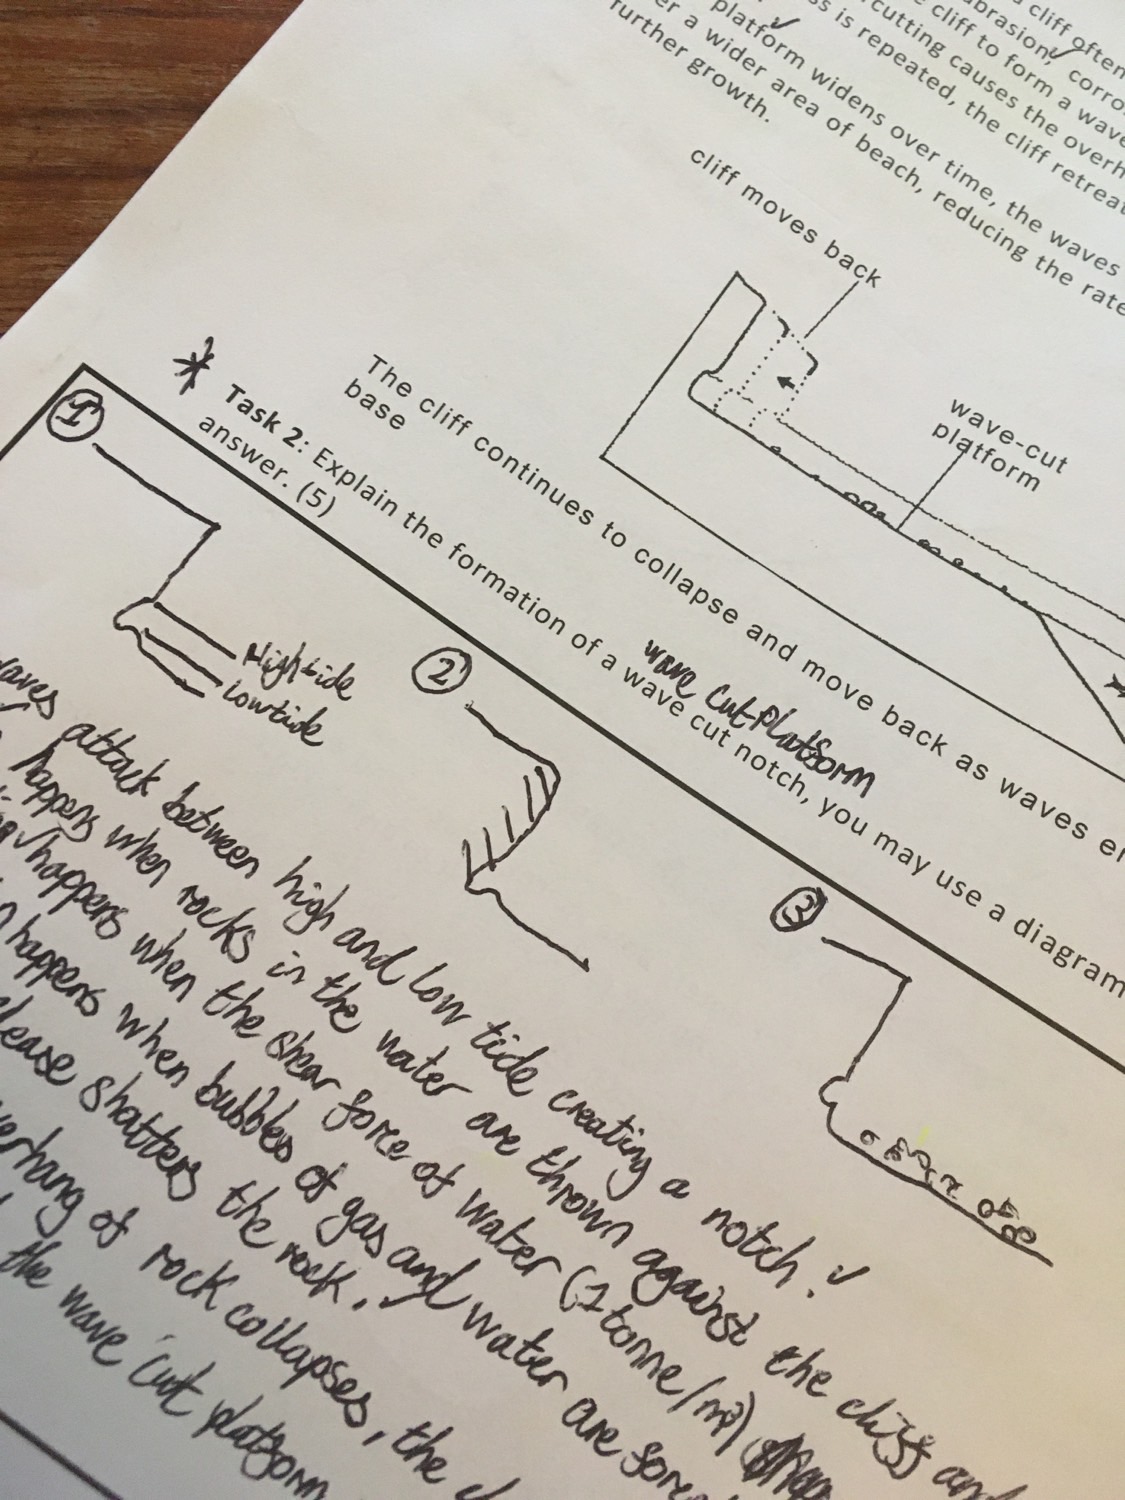 a cliff often
abrasion, corro
e cliff to form a wave
cutting causes the overh
ss is repeated, the cliff retreat
platform widens over time, the waves
er a wider area of beach, reducing the rate
further growth.
cliff moves back
wave-cut
platform
The cliff continues to collapse and move back as waves er
base
wave cut platform
* Task 2: Explain the formation of a wave cut notch, you may use a diagram
answer. (5)
1
High tide
Low tide
2
3
waves attack between high and low tide creating a notch.
happens when rocks in the water are thrown against the cliff and
happens when the shear force of water (1 tonne/m²)
happens when bubbles of gas and water are force
lease shatters the rock.
verhang of rock collapses, the
the wave cut platform